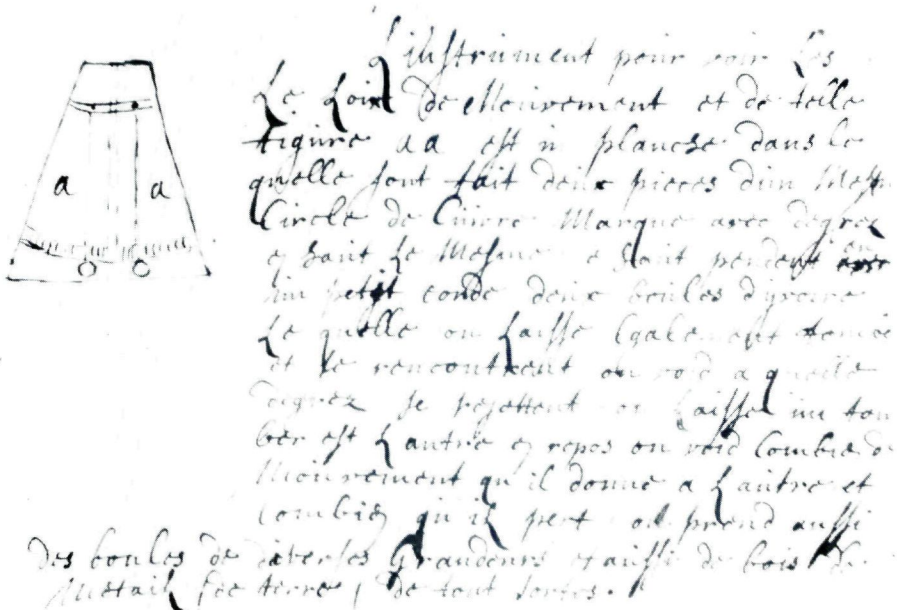 L'instrument pour voir les
Le Loix de Mouvement et de telle
figure aa est un planche dans le
quelle sont fait deux pieces d'un Mesm
Circle de Cuivre Marque avec degrez
en haut Le Mesme e haut pendent en
un petit conde deux boules d'yvoire
Le quelle on Laisse Egalement
et se rencontrent on void a quelle
degrez se rejettent on Laisse un tom
ber est L'autre en repos on void Combie de
Mouvement qu'il donne a L'autre et
Combien qu'il pert on prend aussi
des boules de diverses Grandeurs et aussi de bois de
Metail de terre de tout sortes.
a a